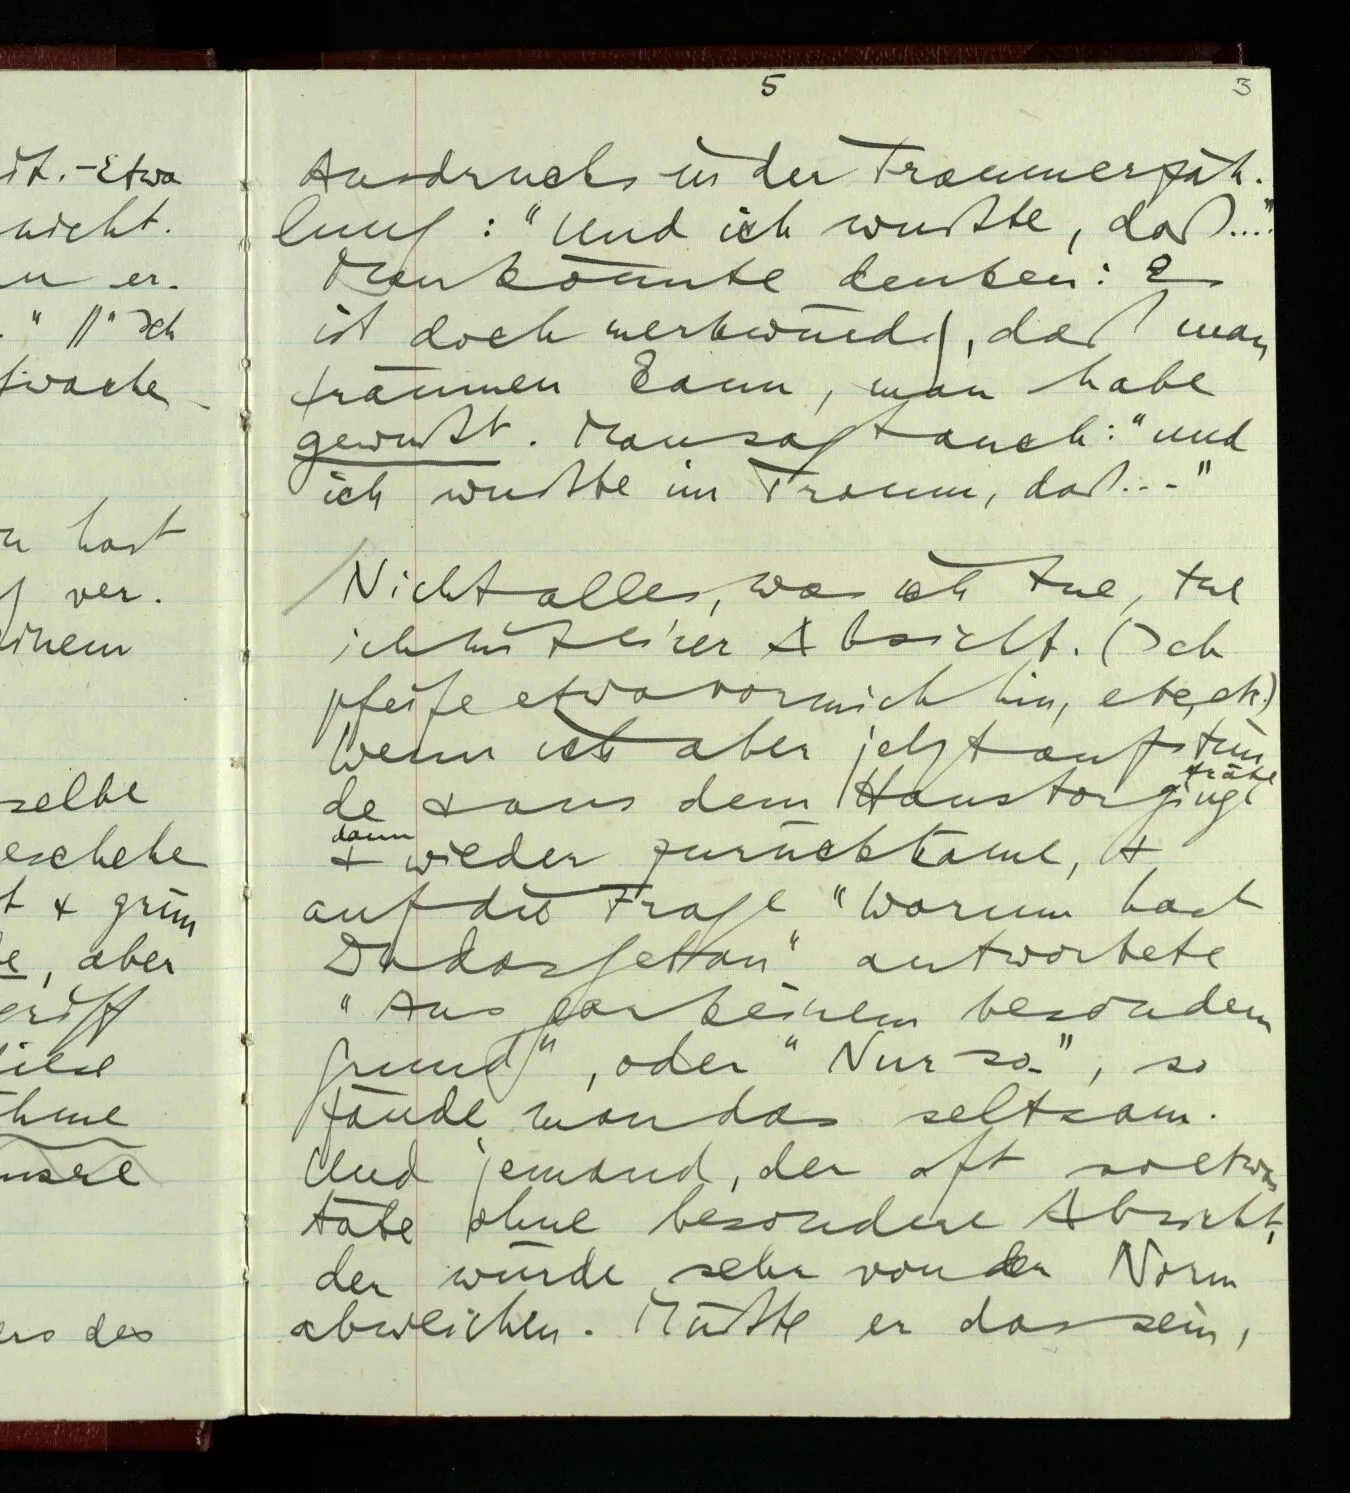 5
3
dt. – Etwa
nicht.
er-
." ||" Ich
hast
ver-
einem
selbe
geschehe
t & grün
e, aber
griff
diese
unsere
ers des
Ausdrucks in der Traumerzäh-
lung: "Und ich wußte, daß...."
Man könnte denken: Es
ist doch merkwürdig, daß man
träumen kann, man habe
gewußt. Man sagt auch: "und
ich wußte im Traum, daß..."
/ Nicht alles, was ich tue, tue
ich mit einer Absicht. (Ich
pfeife etwa vor mich hin, etc, etc.)
Wenn ich aber jetzt aufstün
träte
de & aus dem Haustor ginge
dann
& wieder zurückkäme, &
auf die Frage "Warum hast
Du das getan" antwortete
"Aus gar keinem besondern
Grund", oder "Nur so", so
fände man das seltsam.
Und jemand, der oft so etwas
täte ohne besondere Absicht,
der würde sehr von der Norm
abweichen. Müßte er das sein,